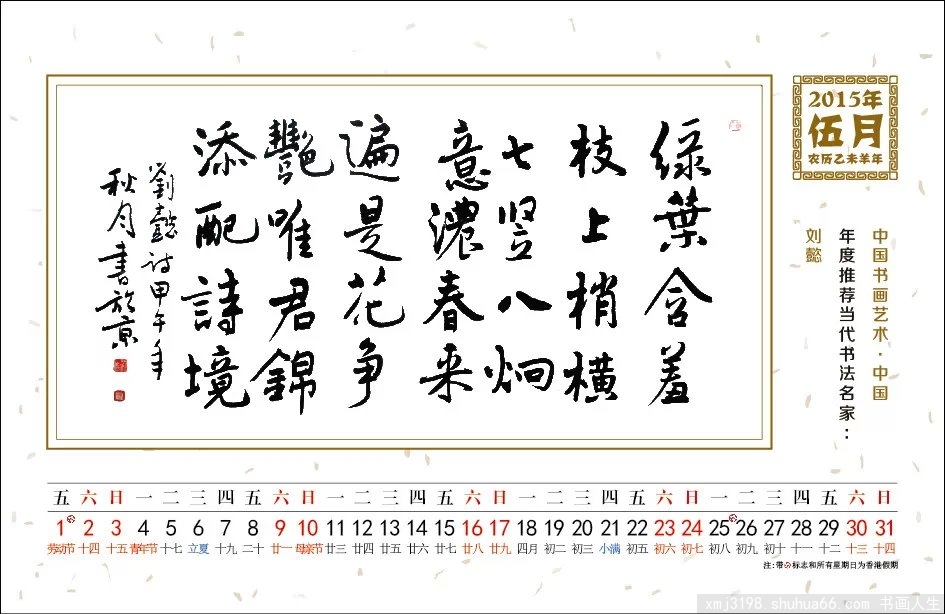 2015年
伍月
农历乙未羊年
中国书画艺术·中国
年度推荐当代书法名家：
刘懿
绿葉含羞
枝上梢橫
七竖八炯
意濃春来
遍是花争
艷唯君錦
添配詩境
劉懿詩甲午年
秋月書於京
五 六 日 一 二 三 四 五 六 日 一 二 三 四 五 六 日 一 二 三 四 五 六 日 一 二 三 四 五 六 日
1 2 3 4 5 6 7 8 9 10 11 12 13 14 15 16 17 18 19 20 21 22 23 24 25 26 27 28 29 30 31
劳动节 十四 十五 青年节 十七 立夏 十九 二十 廿一 母亲节 廿三 廿四 廿五 廿六 廿七 廿八 廿九 四月 初二 初三 小满 初五 初六 初七 初八 初九 初十 十一 十二 十三 十四
注:带标志和所有星期日为香港假期
xmj3198.shuhua66.com 书画人生